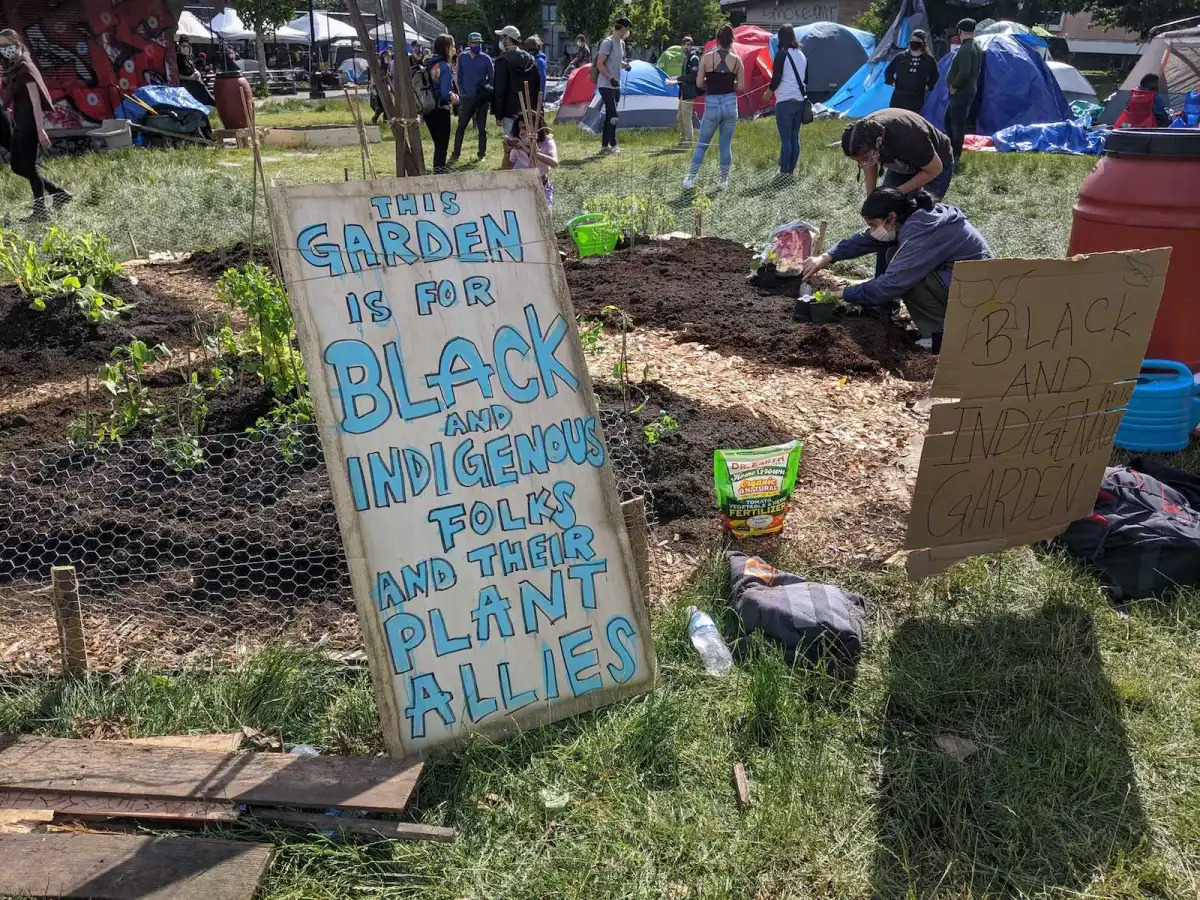 THIS
GARDEN
IS FOR
BLACK
AND
INDIGENOUS
FOLKS
AND THEIR
PLANT
ALLIES
BLACK
AND
INDIGENOUS
GARDEN
DR. EARTH
Home Grown
ORGANIC
& NATURAL
TOMATO
VEGETABLE & HERB
FERTILIZER